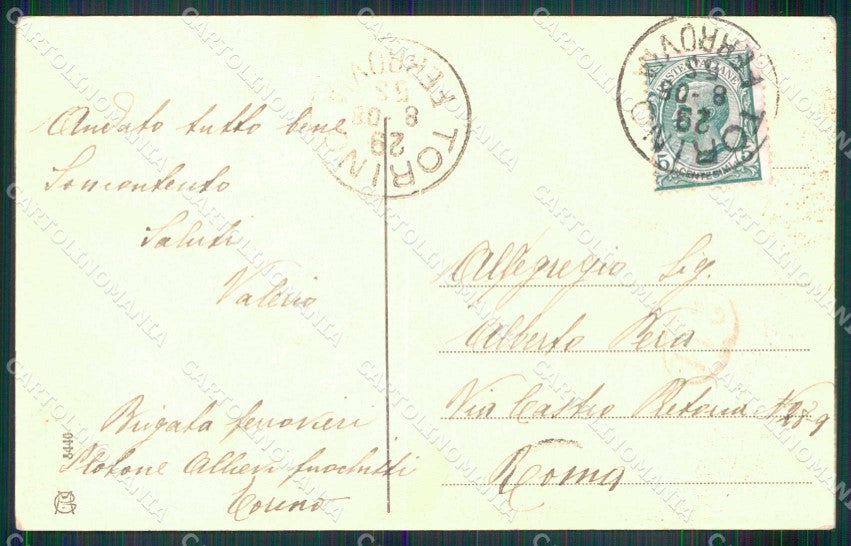 Andato tutto bene
Son contento
Saluti
Valerio
Brigata ferrovieri
Plotone Allievi fuochisti
Torino
8440
TORINO
FERROVIA
29
8-08
5S
POSTE ITALIANE
5 CENTESIMI 5
TORINO
FERROVIA
29
8 08
5S
All'egregio Sig.
Alberto Pera
Via Castro Pretorio N°
Roma
CARTOLINOMANIA